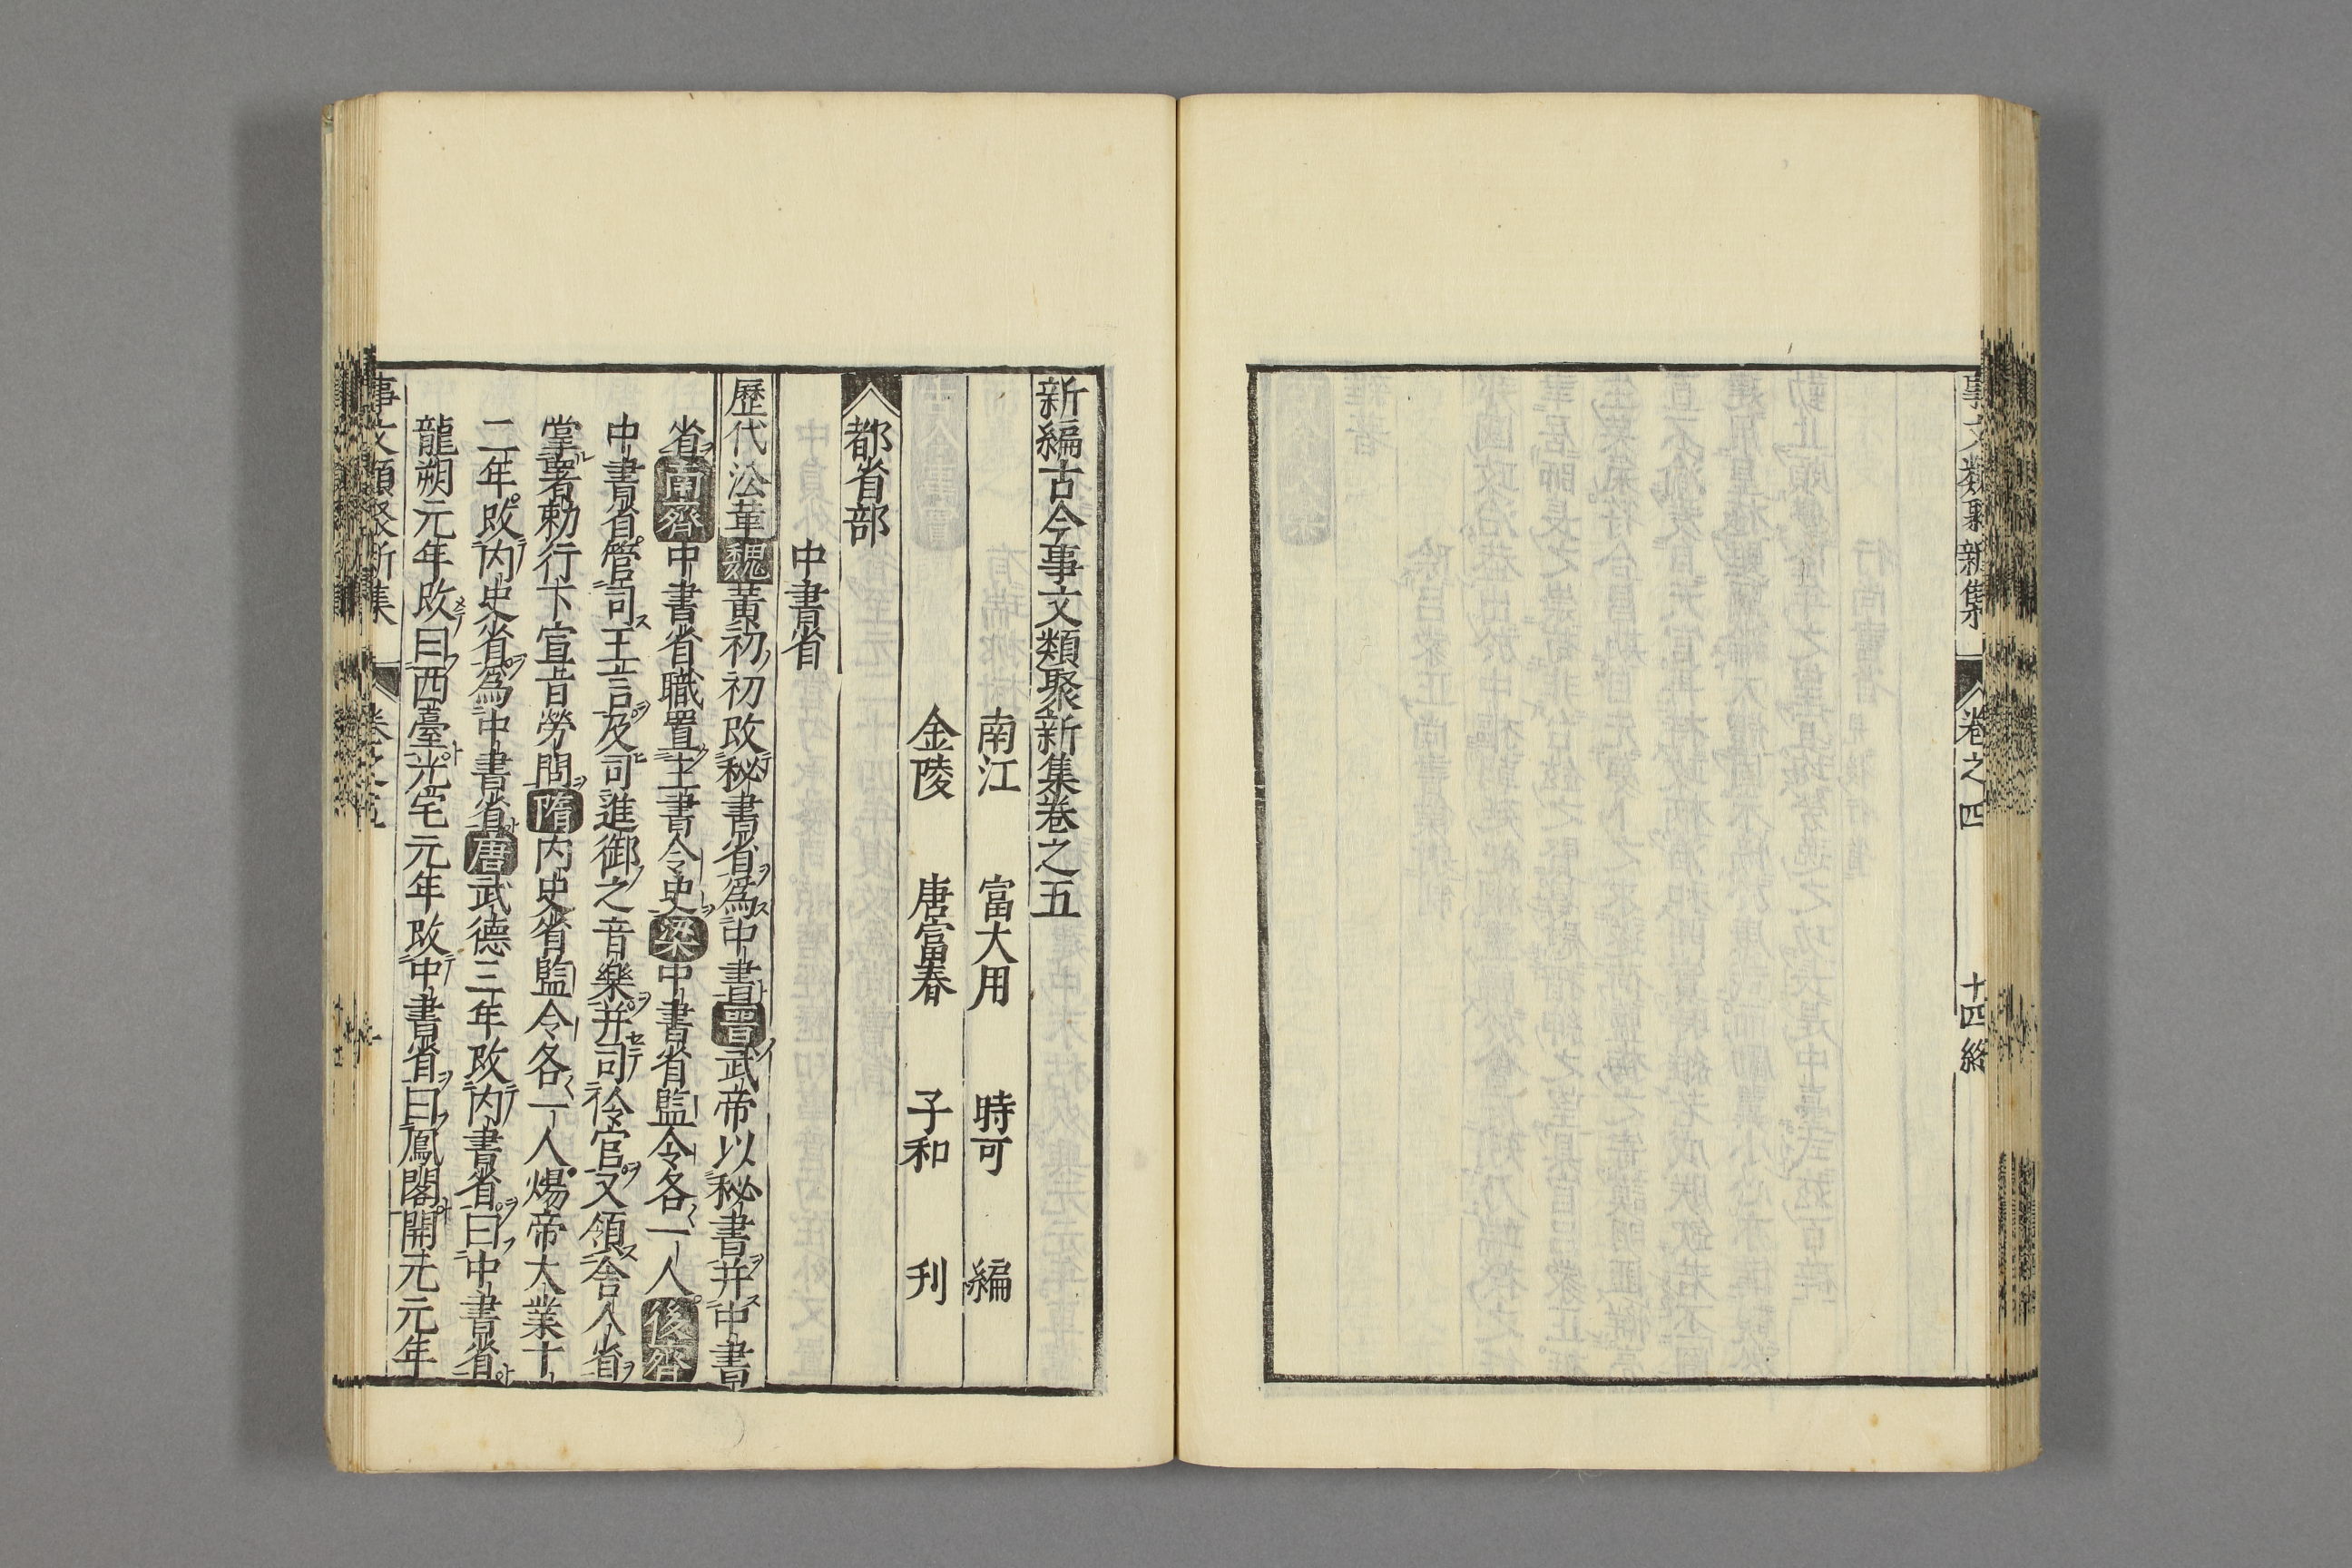 事文類聚新集 卷之四 十四終
新編古今事文類聚新集卷之五
南江 富大用 時可 編
金陵 唐富春 子和 刋
都省部
中書省
歷代㳂革 魏 黃初初改秘書省爲中書 晋 武帝以秘書并中書
省 南齊 中書省職置主書令史 梁 中書省監令各一人 後齊
中書省管司王言及司進御之音樂并司伶官又領舍人省
掌署勅行下宣旨勞問 隋 内史省監令各一人煬帝大業十
二年改内史省爲中書省 唐 武德三年改内書省曰中書省
龍朔元年改曰西臺光宅元年改中書省曰鳳閣開元元年
事文類聚新集 卷之五